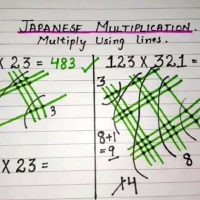 JAPANESE MULTIPLICATION.
Multiply Using lines.
X 23 = 483 ✓
123 X 321 =
3
3
8+1
= 9
8
14
X 23 =